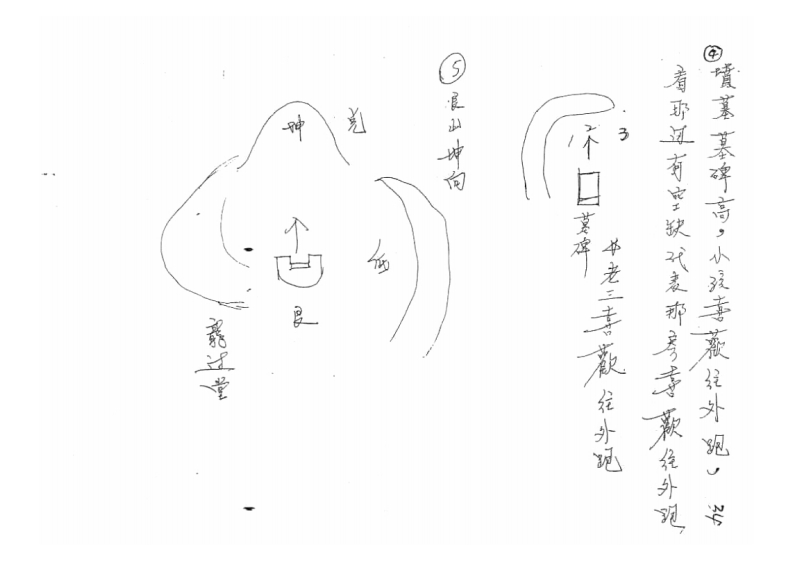 ④
墳墓墓碑高，小孩喜歡往外跑，
看那边有空缺代表那房喜歡往外跑
1 2 3
墓碑
老三喜歡往外跑
⑤
艮山坤向
坤 兌
低
艮
龍过堂